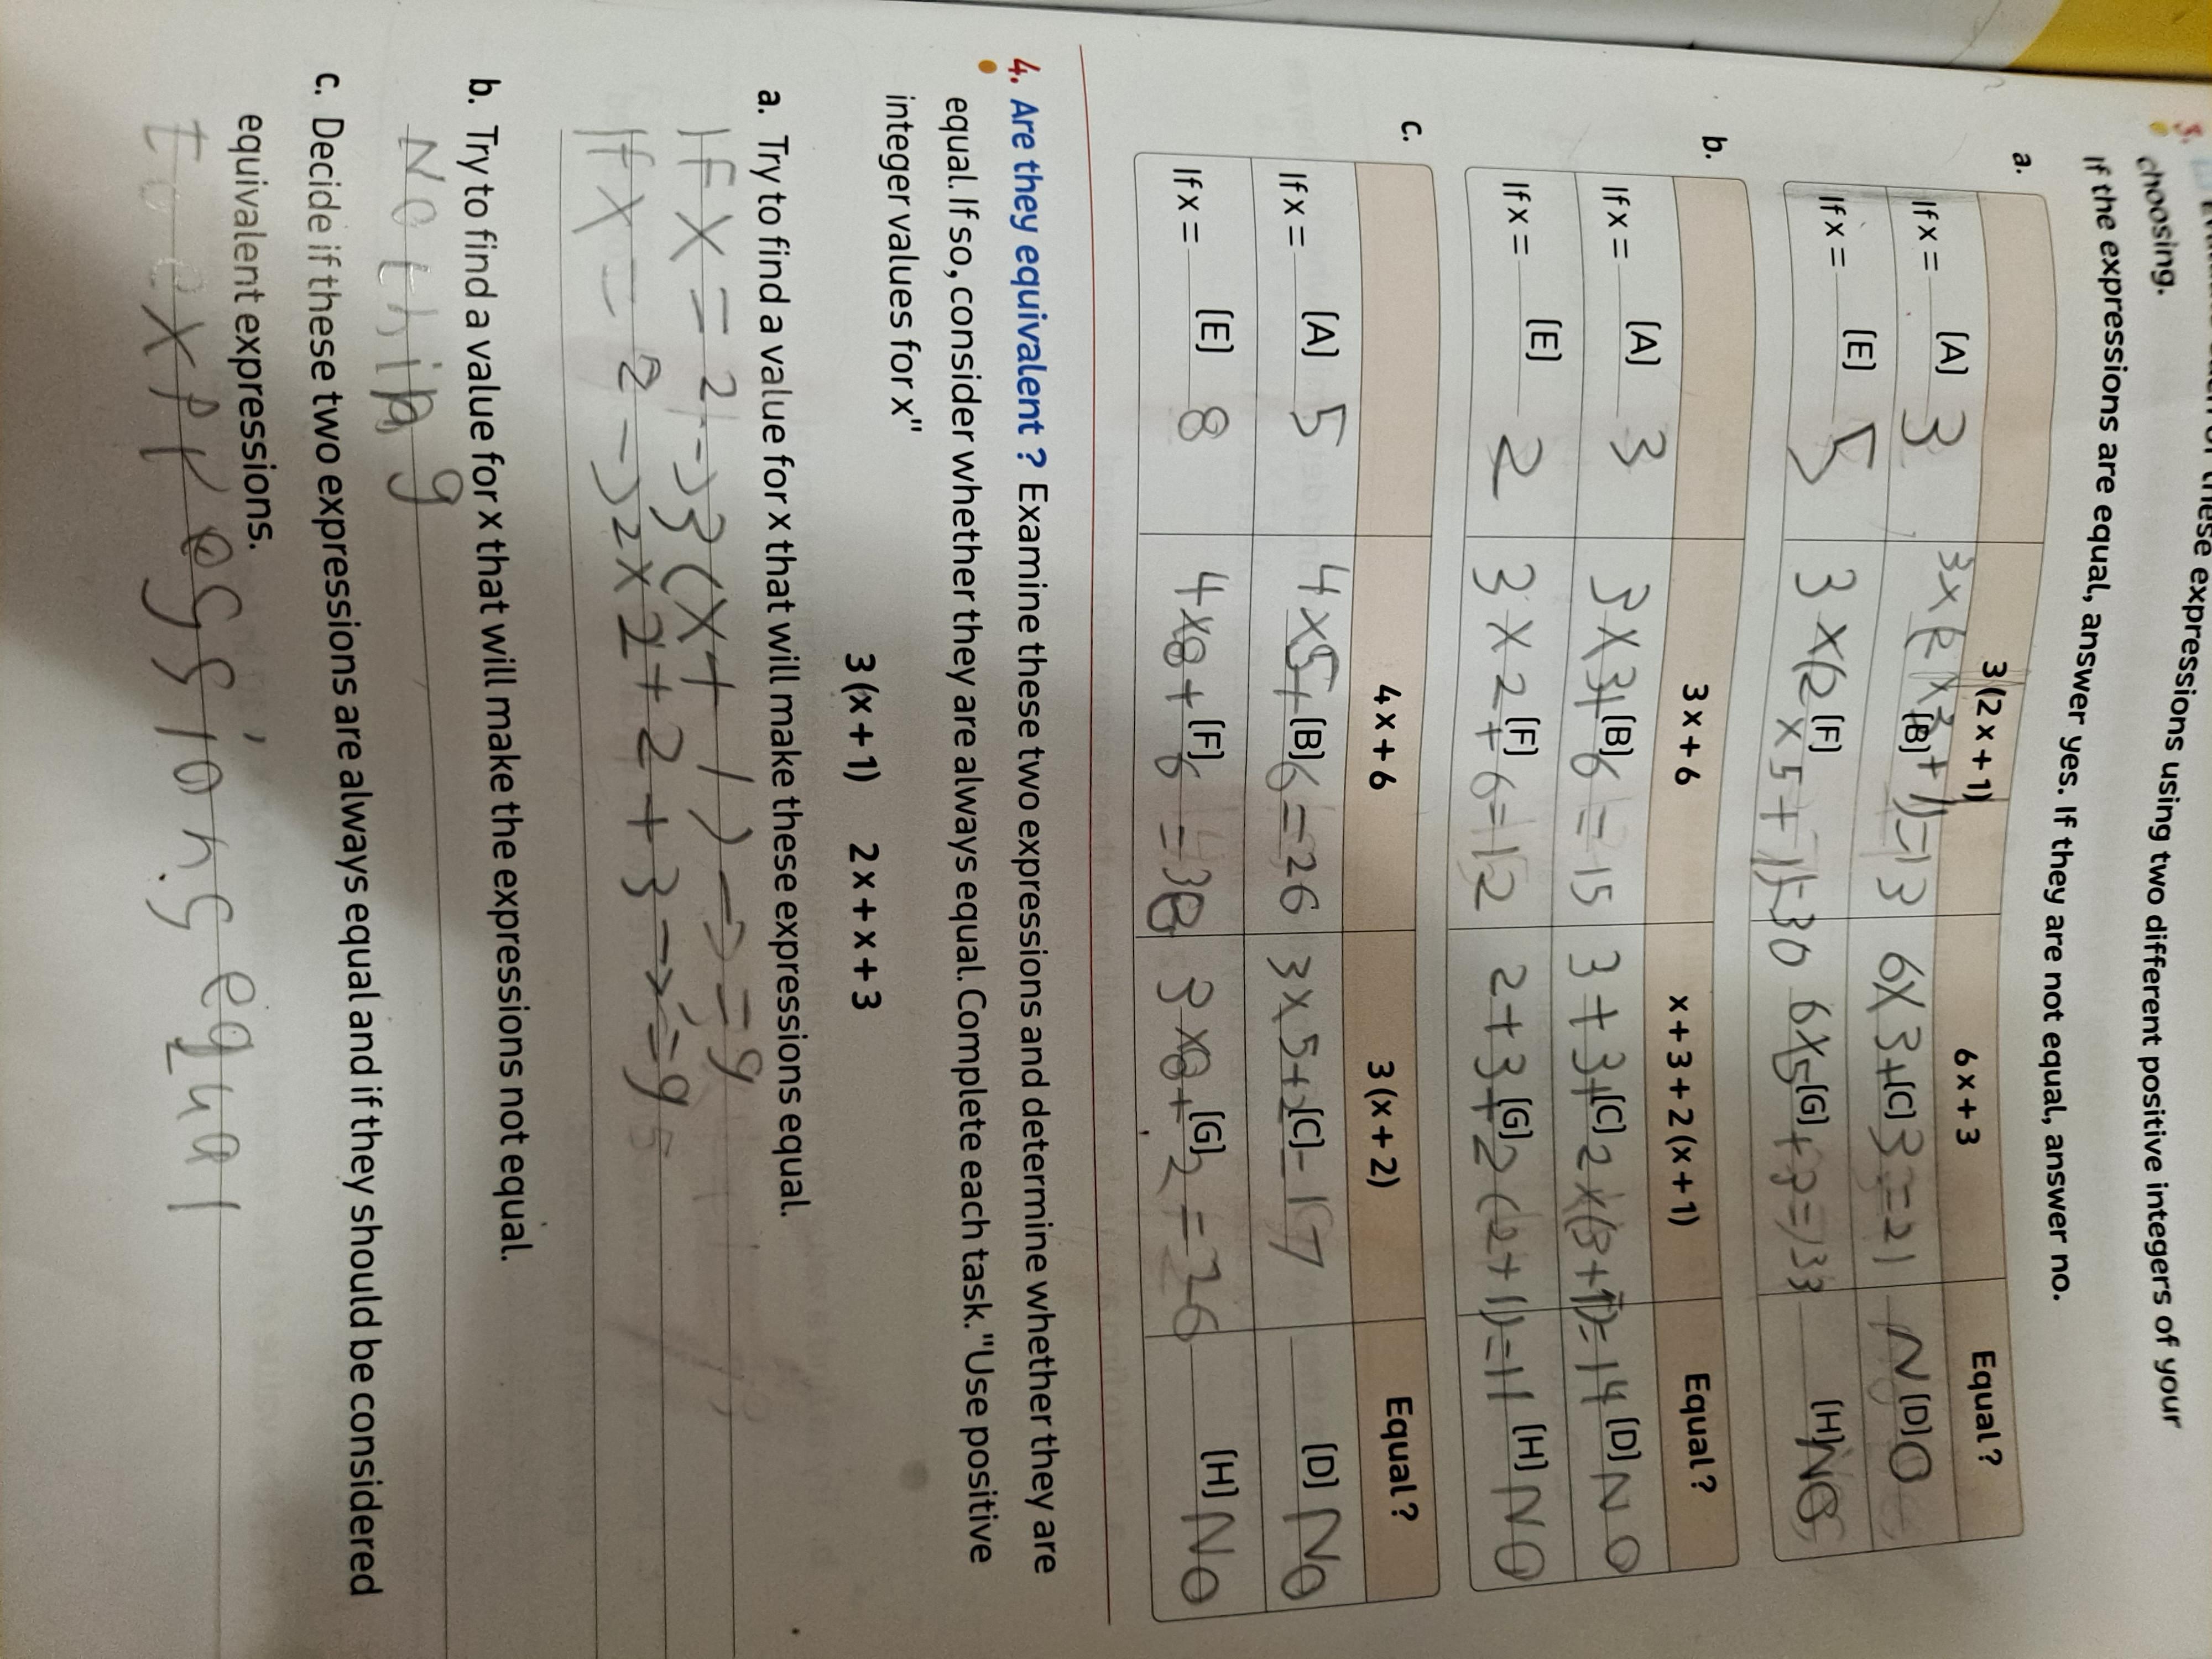 these expressions using two different positive integers of your
3.
choosing.
If the expressions are equal, answer yes. If they are not equal, answer no.
a.
3 (2 x + 1) 6 x + 3 Equal ?
If x = 3 [A] 3x(2x3+1)=13 [B] 6x3+3=21 [C] No [D]
If x = 5 [E] 3x(2x5+1)=30 [F] 6x5+3=33 [G] No [H]
b.
3 x + 6 x + 3 + 2 (x + 1) Equal ?
If x = 3 [A] 3x3+6=15 [B] 3+3+2x(3+1)=14 [C] No [D]
If x = 2 [E] 3x2+6=12 [F] 2+3+2(2+1)=11 [G] No [H]
c.
4 x + 6 3 (x + 2) Equal ?
If x = 5 [A] 4x5+6=26 [B] 3x5+2=17 [C] No [D]
If x = 8 [E] 4x8+6=38 [F] 3x8+2=26 [G] No [H]
4. Are they equivalent ? Examine these two expressions and determine whether they are
equal. If so, consider whether they are always equal. Complete each task."Use positive
integer values for x"
3 (x + 1) 2 x + x + 3
a. Try to find a value for x that will make these expressions equal.
If x = 2 -> 3(x+1) -> = 9
If x = 2 -> 2x2+2+3 -> = 9
b. Try to find a value for x that will make the expressions not equal.
Nothing
c. Decide if these two expressions are always equal and if they should be considered
equivalent expressions.
equal